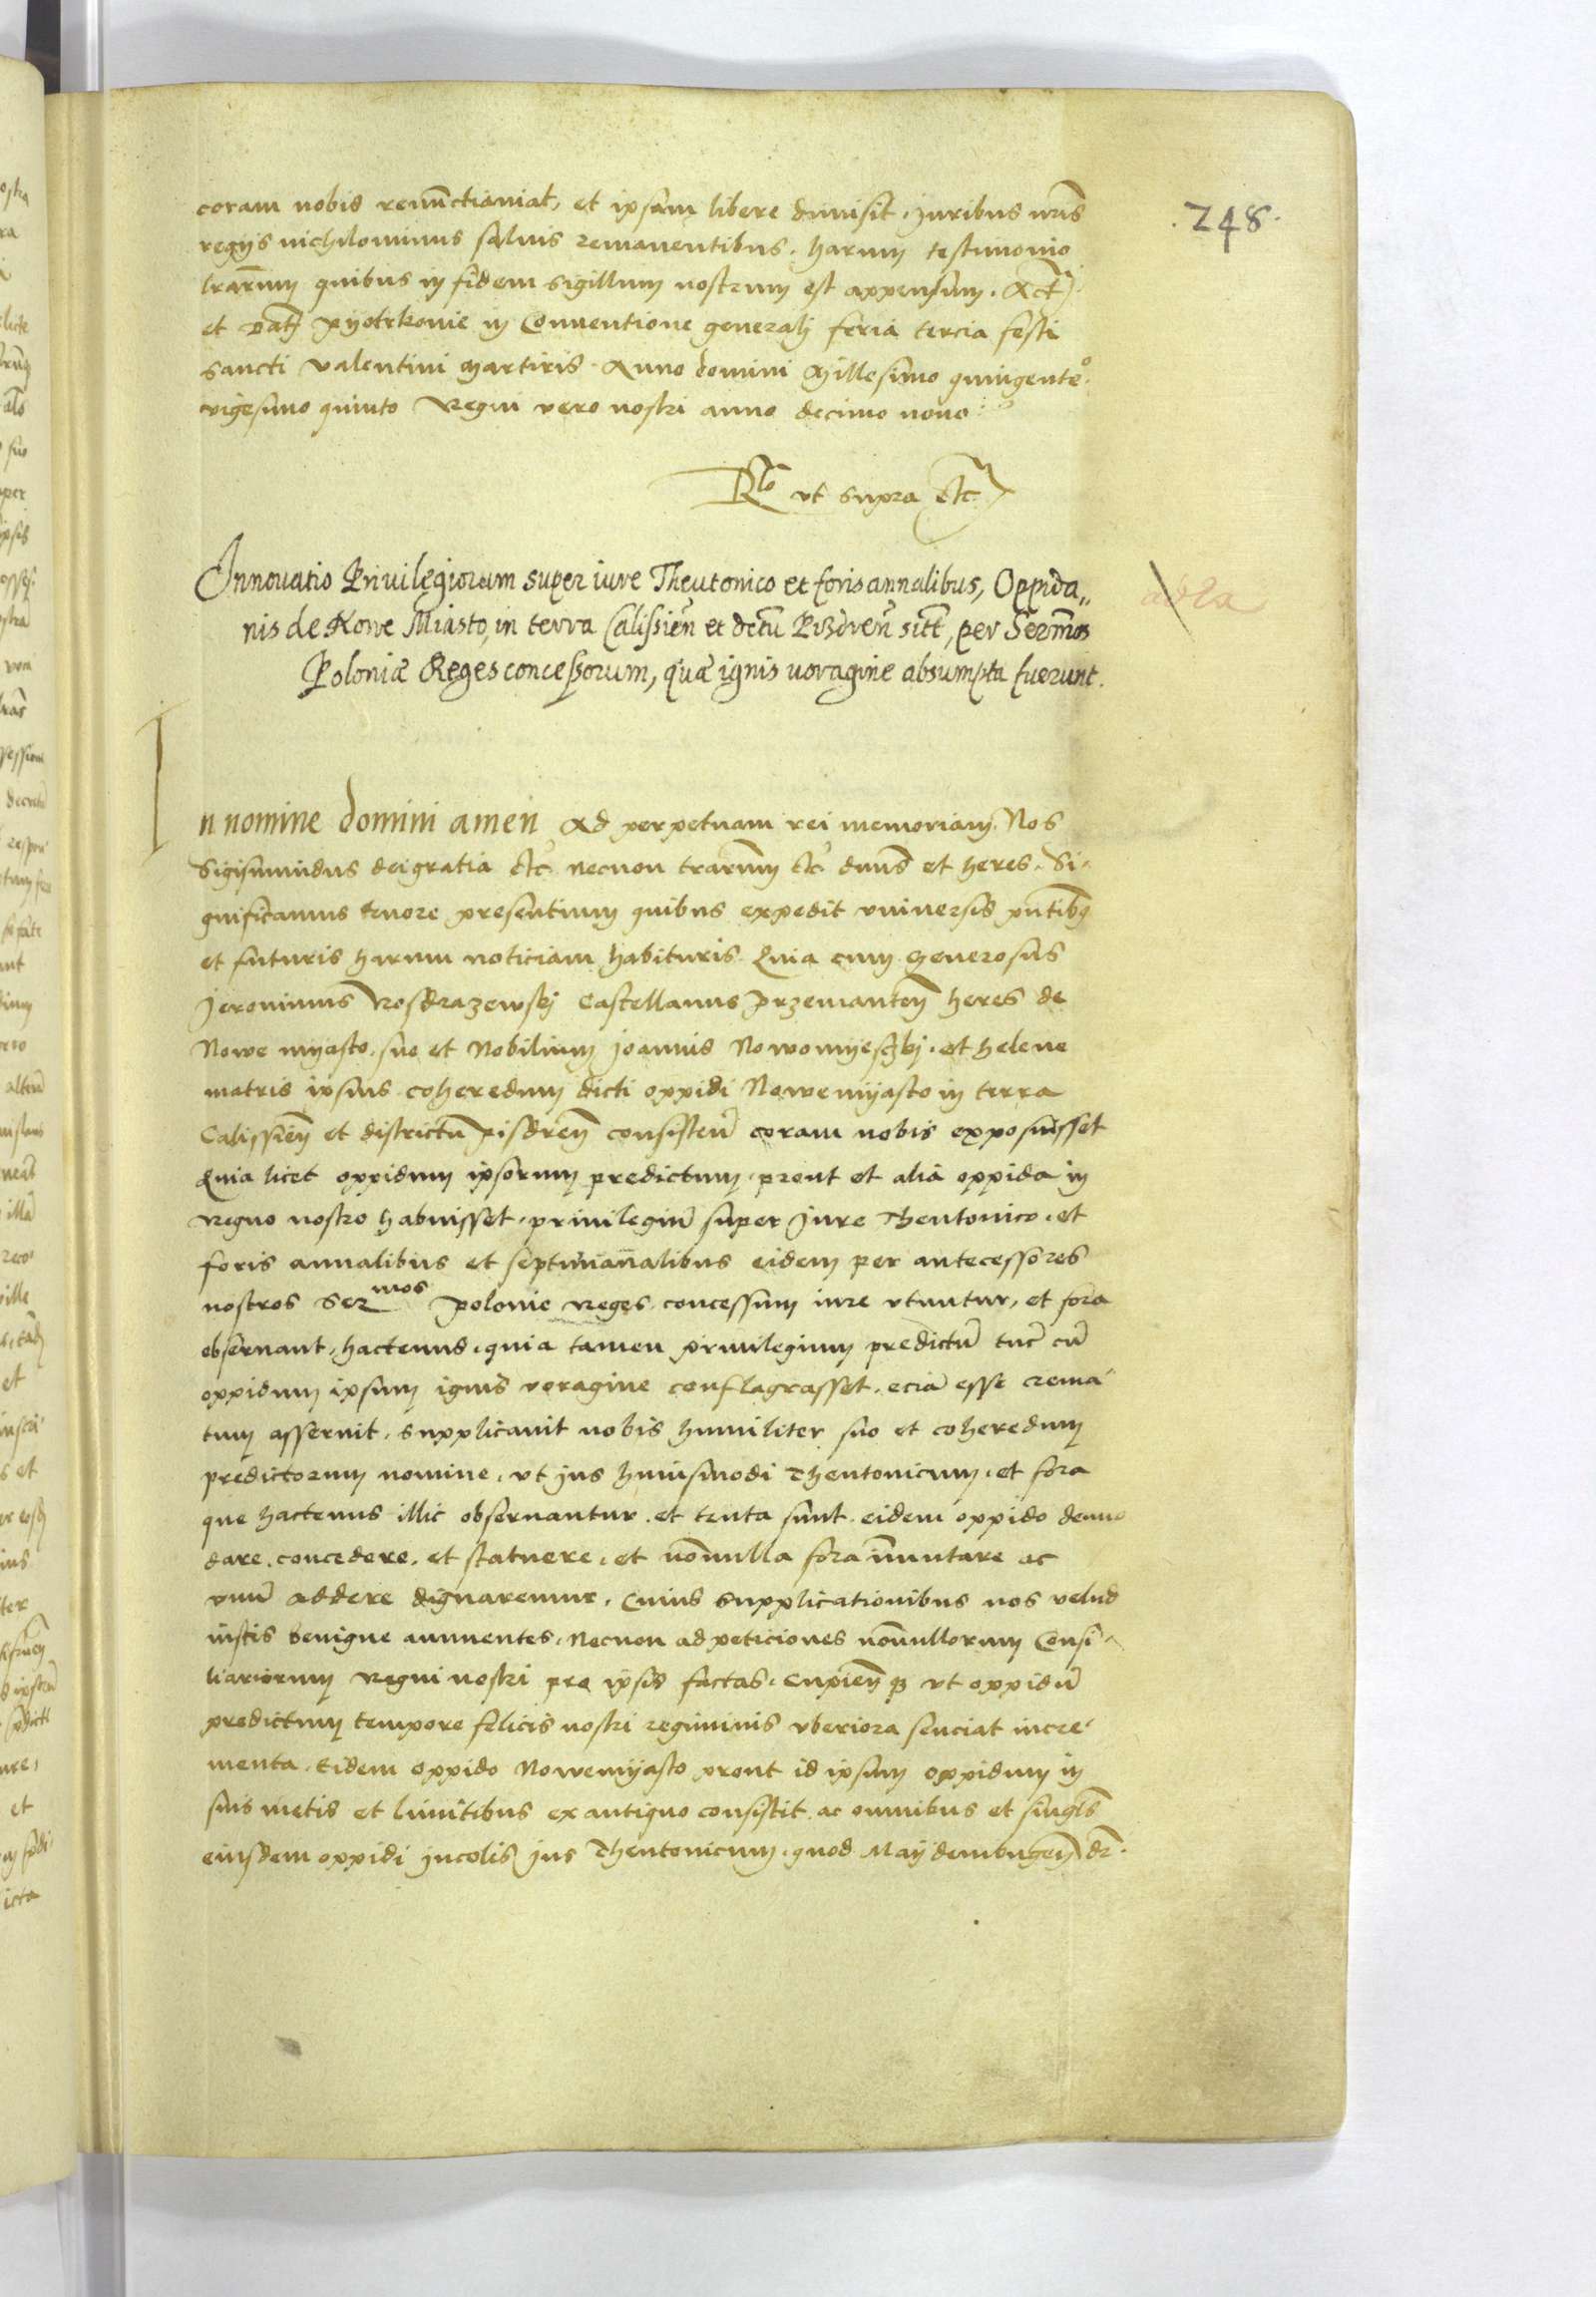 248.
coram nobis renũctiauiat, et ipsam libere dimisit. Juribus nr̃is
regijs nichilominus saluis remanentibus. harum testimonio
lrãrum quibus in fidem sigillum nostrum est appensum. Act̃
et Dat̃ Pyotrkouie in Conuentione generalj feria tercia festi
sancti Valentini Martiris Anno domini Millesimo quingente°.
vigesimo quinto Regni vero nostri anno decimo nono
Rlo vt supra etc
Innouatio Priuilegiorum super iure Theutonico et foris annalibus, Oppida„
nis de Nowe Miasto, in terra Calissien̄ et dctũ Pizdren̄ sitt̃, per Serm̃os
Poloniæ Reges concessorum, quæ ignis uoragine absumpta fuerunt.
In nomine domini amen Ad perpetuam rei memoriam. Nos
Sigismundus deigratia etc necnon trãrum etc dnũs et heres. Si-
gnificamus tenore presentium quibus expedit vniuersis pñtibꝫ
et futuris harum noticiam habituris Quia cum generosus
Jeronimus Rosdrazewskj Castellanus Przemanteñ heres de
Nowe myasto. suo et Nobilium Joannis Nowomyeskj. et helene
matris ipsius coheredum dicti oppidi Nowemyasto in terra
Calissieñ et districtũ pisdreñ consisteñ coram nobis exposuisset
Quia licet oppidum ipsorum predictum. prout et alia oppida in
regno nostro habuisset. priuilegiũ super Jure Theutonico. et
foris annalibus et septimanalibus eidem per antecessores
nostros Sermos Polonie reges concessum iure vtuntur, et fora
obseruant, hactenus. quia tamen priuilegium predictũ tũc cũ
oppidum ipsum ignis voragine conflagrasset. eciã esse crema-
tum asseruit. supplicauit nobis humiliter suo et coheredum
predictorum nomine. vt jus huiusmodi Theutonicum. et fora
que hactenus illic obseruantur. et tenta sunt eidem oppido denuo
dare. concedere. et statuere. et nõnulla fora inmutare ac
vnũ addere dignaremur. Cuius supplicationibus nos velud
iustis benigne annuentes. Necnon ad peticiones nõnullorum Consi-
liariorum regni nostri pro ipsis factas. cupieñqꝫ vt oppidũ
predictum tempore felicis nostri regiminis vberiora senciat incre-
menta. Eidem oppido Nowemyasto prout id ipsum oppidum in
suis metis et limitibus ex antiquo consistit. ac omnibus et singl̃s
eiusdem oppidi jncolis jus Theutonicum. quod Maijdemburgeñ dr̃.